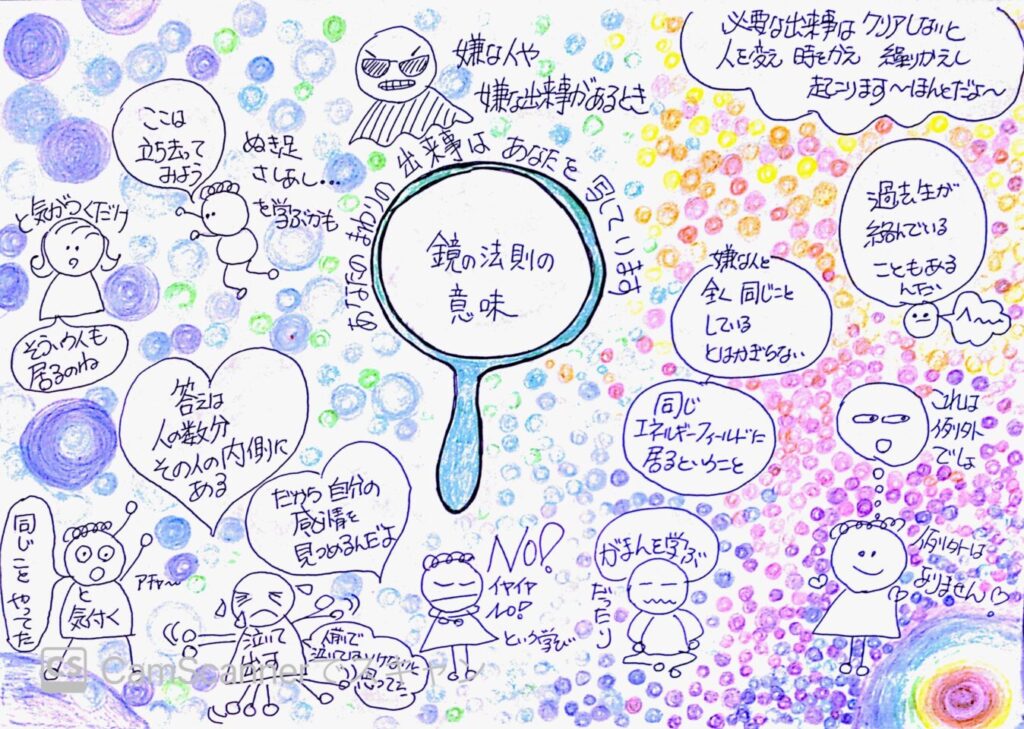 嫌な人や
嫌な出来事があるとき
必要な出来事は クリアしないと
人を変え 時をかえ 繰りかえし
起こります〜ほんとだよ〜
ここは
立ち去って
みよう
ぬき足
さしあし…
を学ぶかも
あなたのまわりの 出来事は あなたを 写しています
鏡の法則の
意味
と気がつくだけ
そういう人も
居るのね
過去生が
絡んでいる
こともある
んだい
へ〜
嫌な人と
全く同じこと
している
とはかぎらない
同じ
エネルギーフィールドに
居るということ
これは
例外
でしょ
答えは
人の数分
その人の内側に
ある
だから自分の
感情を
見つめるんだよ
同じことやってた
と気付く
アチャ〜
泣いて
人前で
泣いてはいけないと
思ってた
NO!
イヤイヤ
NO!
という学び
がまんを学ぶ
だったり
例外は
ありません
CS CamScannerでスキャン